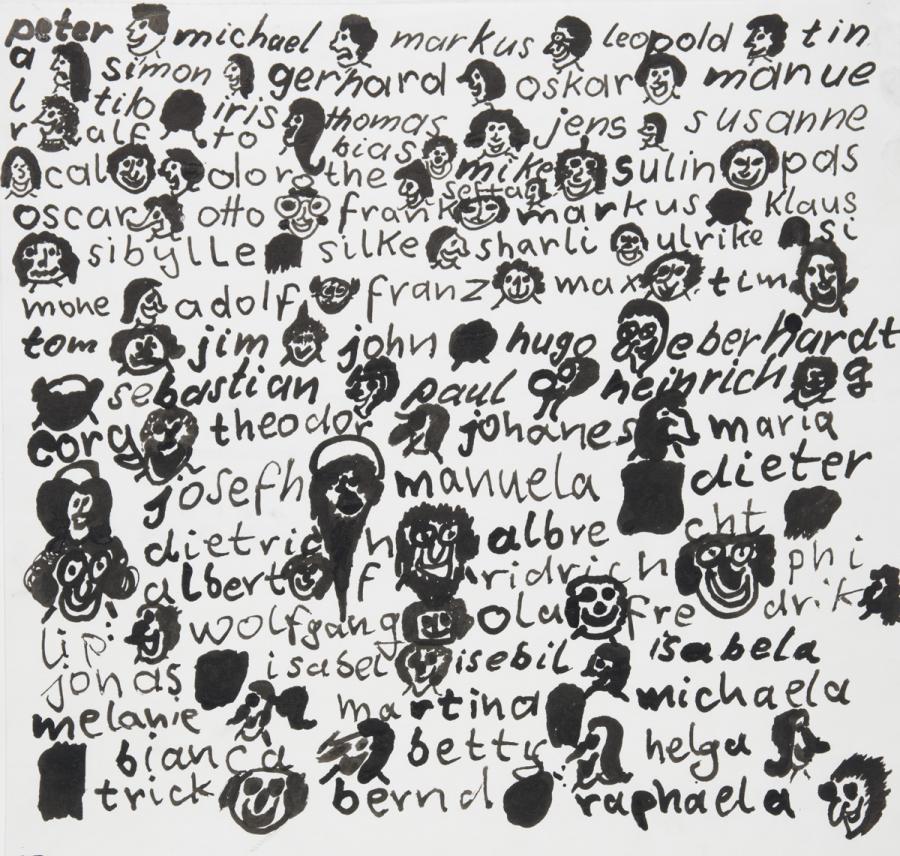 peter michael markus leopold tin
a simon gerhard oskar manue
l tilo iris thomas jens susanne
r alf to bias mike sulin pas
cal olor the setta
oscar otto frank markus klaus
sibylle silke sharli ulrike si
mone adolf franz max tim
tom jim john hugo eberhardt
sebastian paul heinrich g
corg theodor johanes maria
josefh manuela dieter
dietric h albre cht
albert f ridrich phi
lip wolfgang ola fre drik
jonas isabel isebil isabela
melanie martina michaela
bianca betty helga
trick bernd raphaela